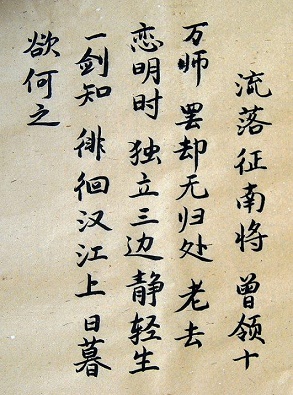 流落征南将 曾领十
万师 罢却无归处 老去
恋明时 独立三边静轻生
一剑知 徘徊汉江上 日暮
欲何之